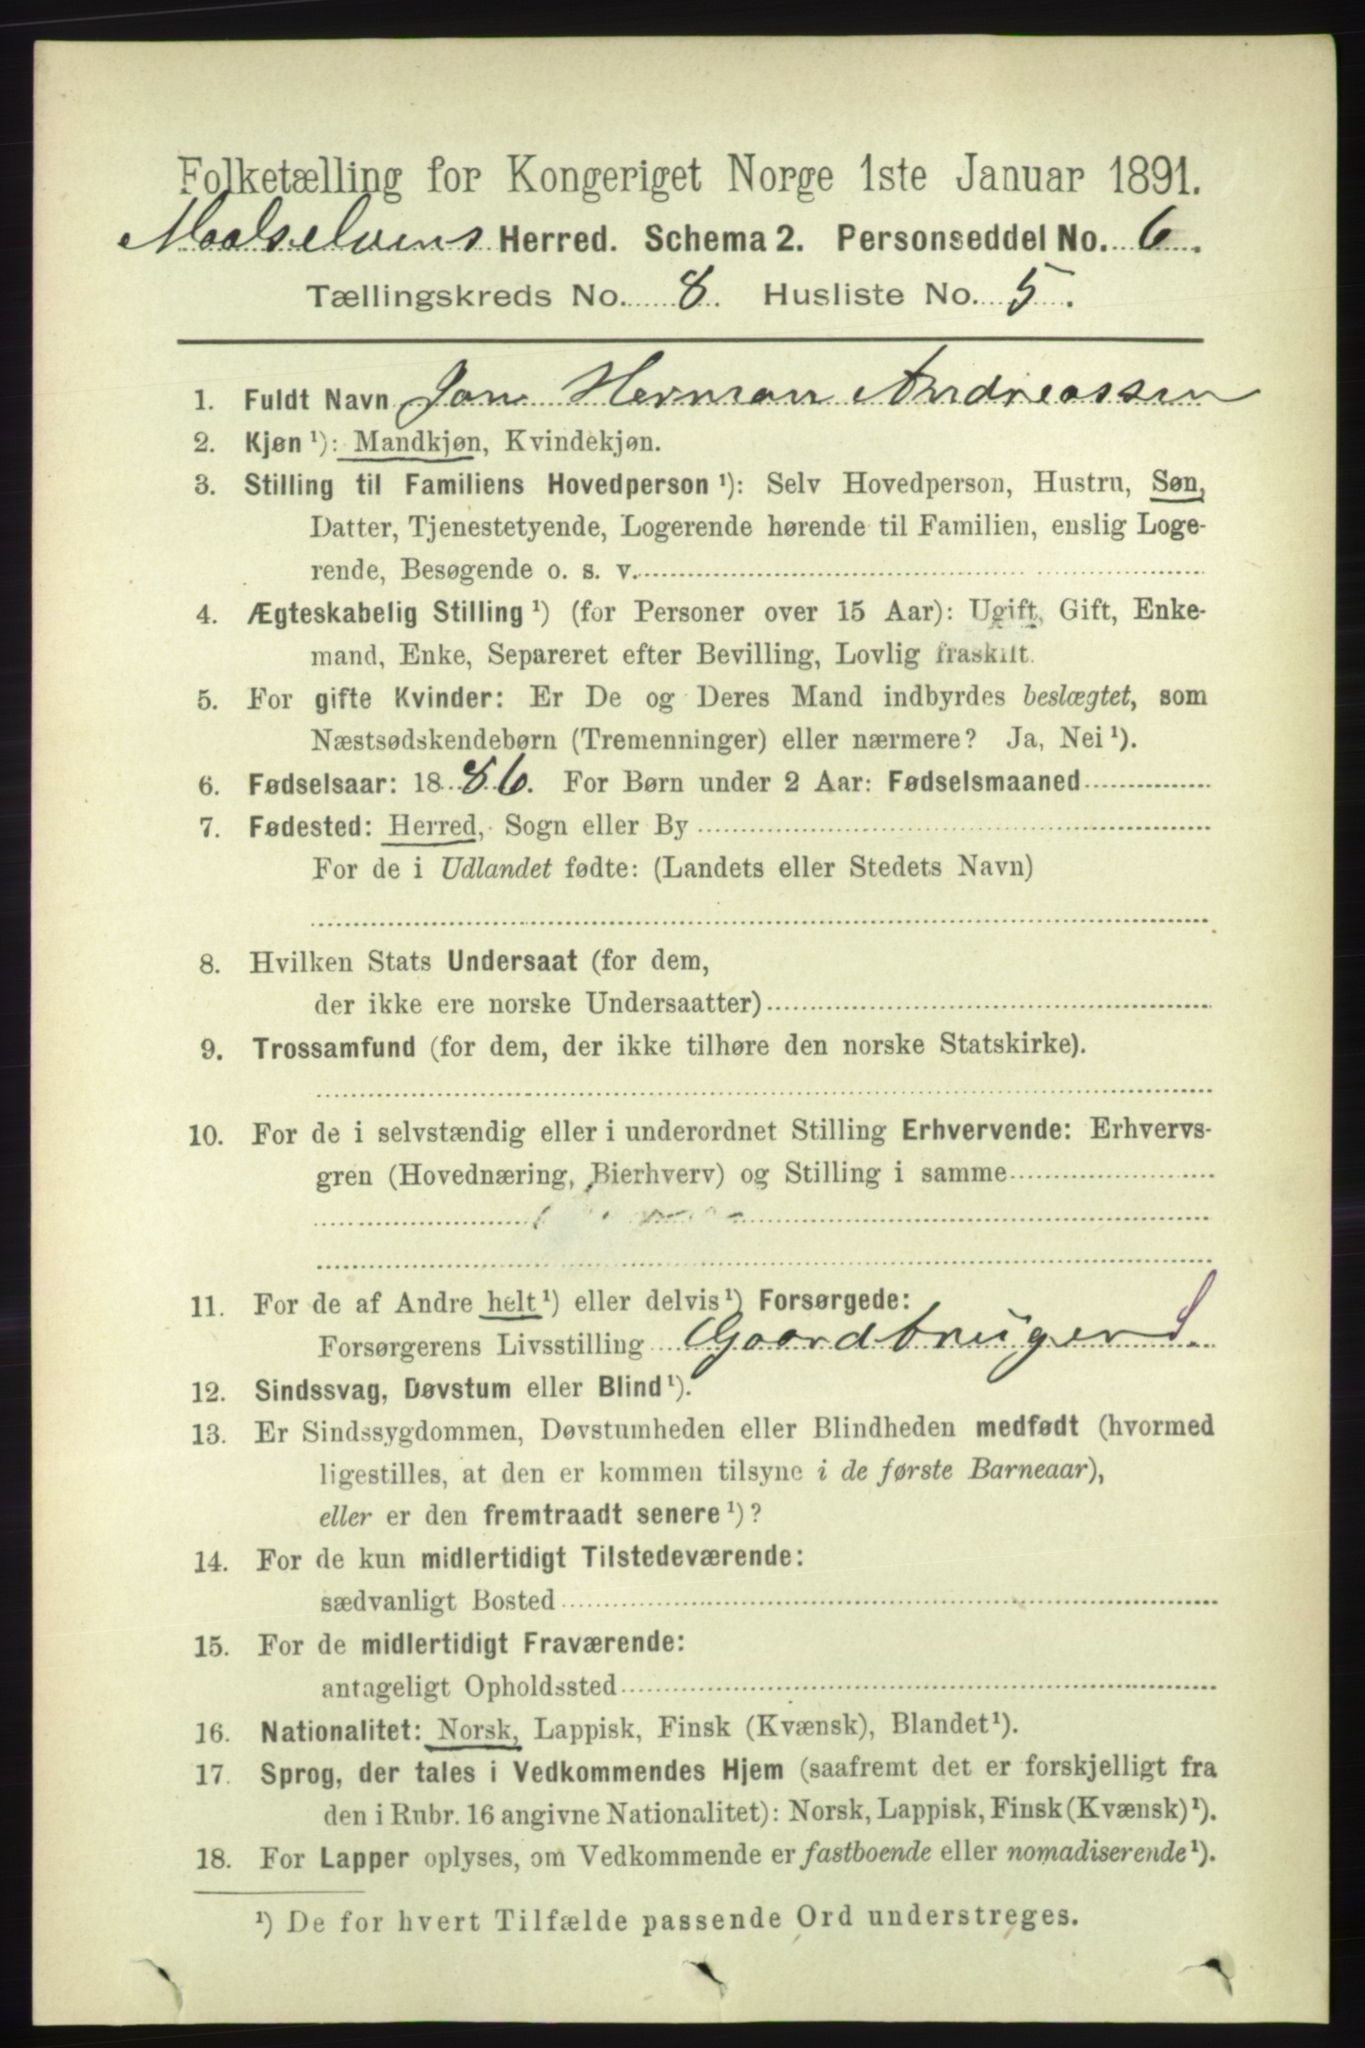 Folketælling for Kongeriget Norge 1ste Januar 1891.
Maalselvens Herred. Schema 2. Personseddel No. 6.
Tællingskreds No. 8. Husliste No. 5.
1. Fuldt Navn Jon Herman Andreassen
2. Kjøn ¹): Mandkjøn, Kvindekjøn.
3. Stilling til Familiens Hovedperson ¹): Selv Hovedperson, Hustru, Søn,
Datter, Tjenestetyende, Logerende hørende til Familien, enslig Loge-
rende, Besøgende o. s. v.
4. Ægteskabelig Stilling ¹) (for Personer over 15 Aar): Ugift, Gift, Enke-
mand, Enke, Separeret efter Bevilling, Lovlig fraskilt.
5. For gifte Kvinder: Er De og Deres Mand indbyrdes beslægtet, som
Næstsødskendebørn (Tremenninger) eller nærmere? Ja, Nei ¹).
6. Fødselsaar: 1886. For Børn under 2 Aar: Fødselsmaaned
7. Fødested: Herred, Sogn eller By
For de i Udlandet fødte: (Landets eller Stedets Navn)
8. Hvilken Stats Undersaat (for dem,
der ikke ere norske Undersaatter)
9. Trossamfund (for dem, der ikke tilhøre den norske Statskirke).
10. For de i selvstændig eller i underordnet Stilling Erhvervende: Erhvervs-
gren (Hovednæring, Bierhverv) og Stilling i samme
11. For de af Andre helt ¹) eller delvis ¹) Forsørgede:
Forsørgerens Livsstilling Gaardbruger S.
12. Sindssvag, Døvstum eller Blind ¹).
13. Er Sindssygdommen, Døvstumheden eller Blindheden medfødt (hvormed
ligestilles, at den er kommen tilsyne i de første Barneaar),
eller er den fremtraadt senere ¹)?
14. For de kun midlertidigt Tilstedeværende:
sædvanligt Bosted
15. For de midlertidigt Fraværende:
antageligt Opholdssted
16. Nationalitet: Norsk, Lappisk, Finsk (Kvænsk), Blandet ¹).
17. Sprog, der tales i Vedkommendes Hjem (saafremt det er forskjelligt fra
den i Rubr. 16 angivne Nationalitet): Norsk, Lappisk, Finsk (Kvænsk) ¹).
18. For Lapper oplyses, om Vedkommende er fastboende eller nomadiserende ¹).
¹) De for hvert Tilfælde passende Ord understreges.